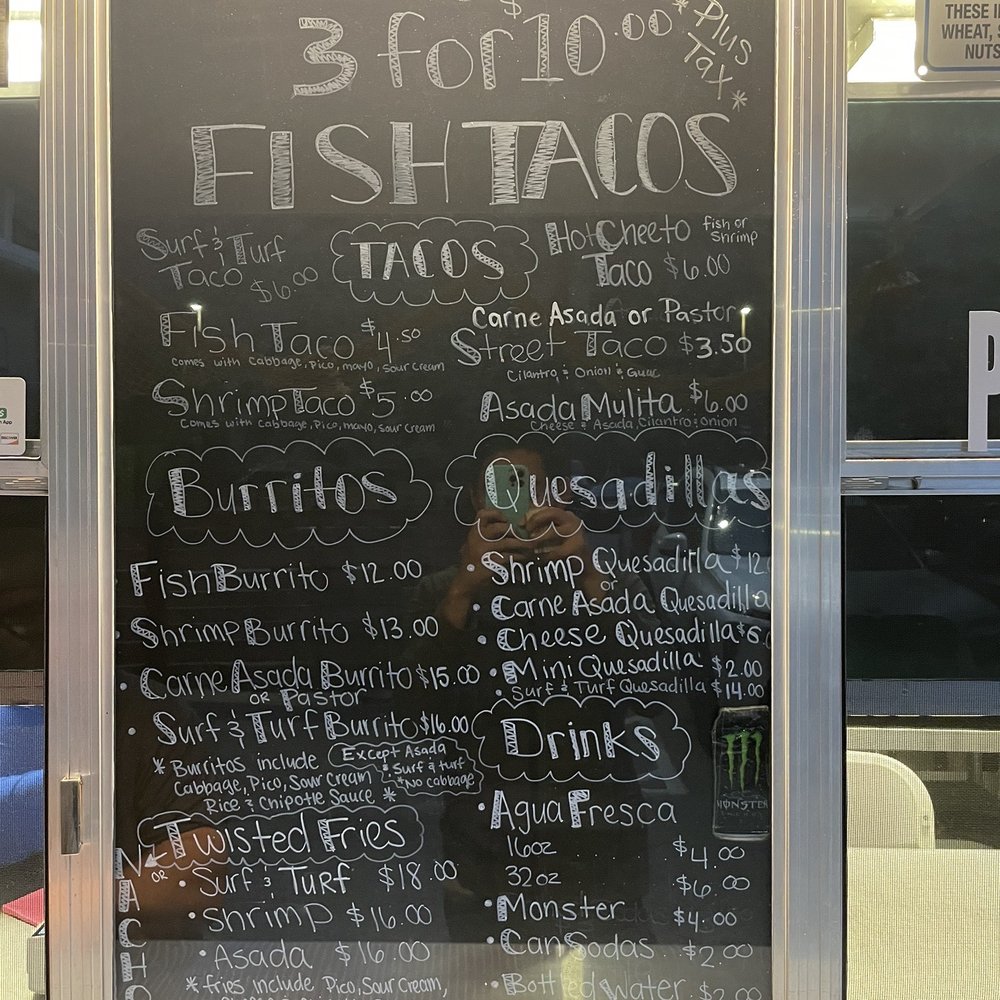 3 for $10.00
*Plus Tax*
FISH TACOS
Surf & Turf
Taco $6.00
TACOS
Hot Cheeto fish or Shrimp
Taco $6.00
Fish Taco $4.50
Comes with Cabbage, Pico, mayo, Sour Cream
Carne Asada or Pastor
Street Taco $3.50
Cilantro & Onion & Guac
Shrimp Taco $5.00
Comes with Cabbage, Pico, mayo, Sour Cream
Asada Mulita $6.00
Cheese & Asada, Cilantro & onion
Burritos
Fish Burrito $12.00
• Shrimp Burrito $13.00
• Carne Asada Burrito $15.00
OR Pastor
• Surf & Turf Burrito $16.00
* Burritos include
Cabbage, Pico, Sour Cream
Rice & Chipotle Sauce *
Except Asada
& Surf & turf
*No Cabbage
Quesadillas
• Shrimp Quesadilla $12
or
Carne Asada Quesadilla
• Cheese Quesadilla $6
• Mini Quesadilla $2.00
• Surf & Turf Quesadilla $14.00
Twisted Fries
OR
NACHO
• Surf & Turf $18.00
• Shrimp $16.00
• Asada $16.00
* fries include Pico, Sour Cream,
Drinks
• Agua Fresca
16oz $4.00
32oz $6.00
• Monster $4.00
• Can Sodas $2.00
• Bottled Water $2.00
MONSTER
THESE
WHEAT,
NUTS
P